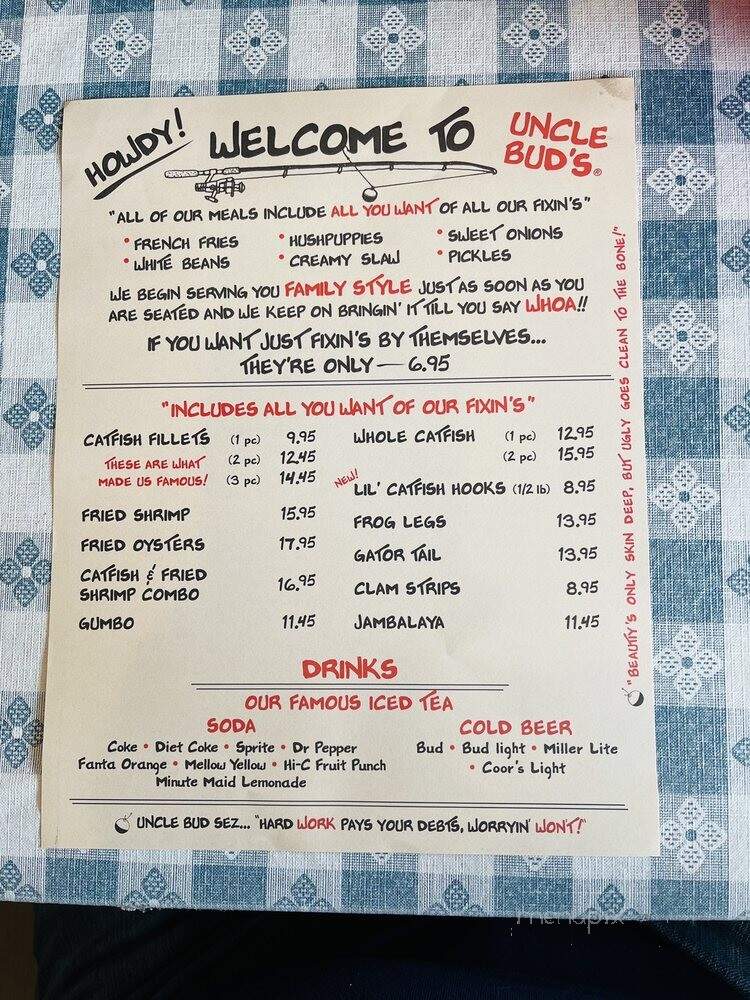 HOWDY! WELCOME TO UNCLE BUD'S®
"ALL OF OUR MEALS INCLUDE ALL YOU WANT OF ALL OUR FIXIN'S"
• FRENCH FRIES • HUSHPUPPIES • SWEET ONIONS
• WHITE BEANS • CREAMY SLAW • PICKLES
WE BEGIN SERVING YOU FAMILY STYLE JUST AS SOON AS YOU
ARE SEATED AND WE KEEP ON BRINGIN' IT TILL YOU SAY WHOA!!
IF YOU WANT JUST FIXIN'S BY THEMSELVES...
THEY'RE ONLY — 6.95
"INCLUDES ALL YOU WANT OF OUR FIXIN'S"
CATFISH FILLETS (1 pc) 9.95
THESE ARE WHAT (2 pc) 12.45
MADE US FAMOUS! (3 pc) 14.45
FRIED SHRIMP 15.95
FRIED OYSTERS 17.95
CATFISH & FRIED
SHRIMP COMBO 16.95
GUMBO 11.45
WHOLE CATFISH (1 pc) 12.95
(2 pc) 15.95
NEW! LIL' CATFISH HOOKS (1/2 lb) 8.95
FROG LEGS 13.95
GATOR TAIL 13.95
CLAM STRIPS 8.95
JAMBALAYA 11.45
"BEAUTY'S ONLY SKIN DEEP, BUT UGLY GOES CLEAN TO THE BONE!"
DRINKS
OUR FAMOUS ICED TEA
SODA
Coke • Diet Coke • Sprite • Dr Pepper
Fanta Orange • Mellow Yellow • Hi-C Fruit Punch
Minute Maid Lemonade
COLD BEER
Bud • Bud light • Miller Lite
• Coor's Light
UNCLE BUD SEZ... "HARD WORK PAYS YOUR DEBTS, WORRYIN' WON'T!"
menupix